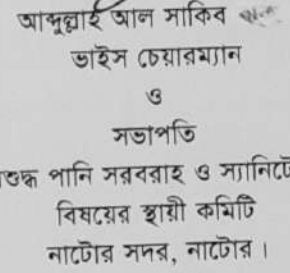 আব্দুল্লাহ আল সাকিব
ভাইস চেয়ারম্যান
ও
সভাপতি
শুদ্ধ পানি সরবরাহ ও স্যানিটে
বিষয়ের স্থায়ী কমিটি
নাটোর সদর, নাটোর।